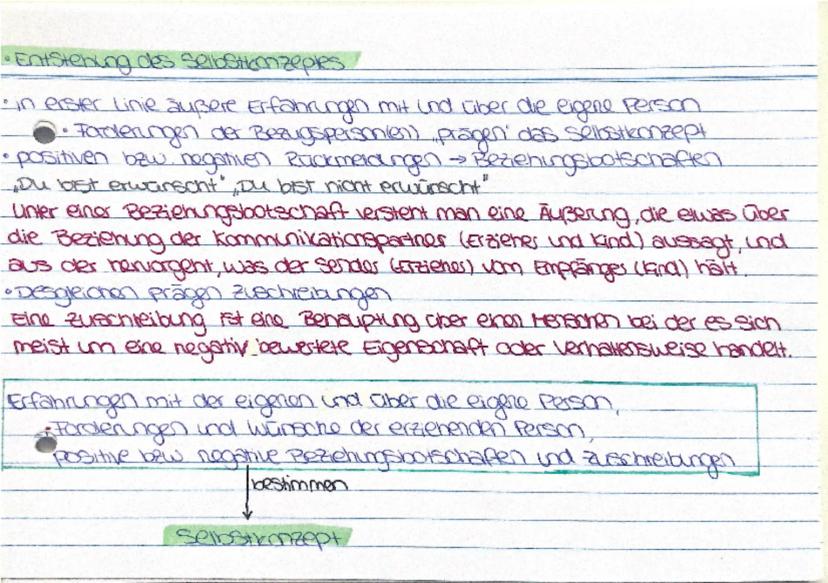 • Entstehung des Selbstkonzeptes
• in erster Linie äußere Erfahrungen mit und über die eigene Person
• Forderungen der Bezugsperson(en) „prägen" das Selbstkonzept
• positiven bzw negativen Rückmeldungen → Beziehungsbotschaften
„Du bist erwünscht" „Du bist nicht erwünscht"
Unter einer Beziehungsbotschaft versteht man eine Äußerung, die etwas über
die Beziehung der Kommunikationspartner (Erzieher und Kind) aussagt, und
aus der hervorgeht, was der Sender (Erzieher) vom Empfänger (Kind) hält.
• Desgleichen prägen Zuschreibungen
Eine Zuschreibung ist eine Behauptung über einen Menschen bei der es sich
meist um eine negativ bewertete Eigenschaft oder Verhaltensweise handelt.
Erfahrungen mit der eigenen und über die eigene Person,
• Forderungen und Wünsche der erziehenden Person,
positive bzw negative Beziehungsbotschaften und Zuschreibungen
bestimmen
Selbstkonzept